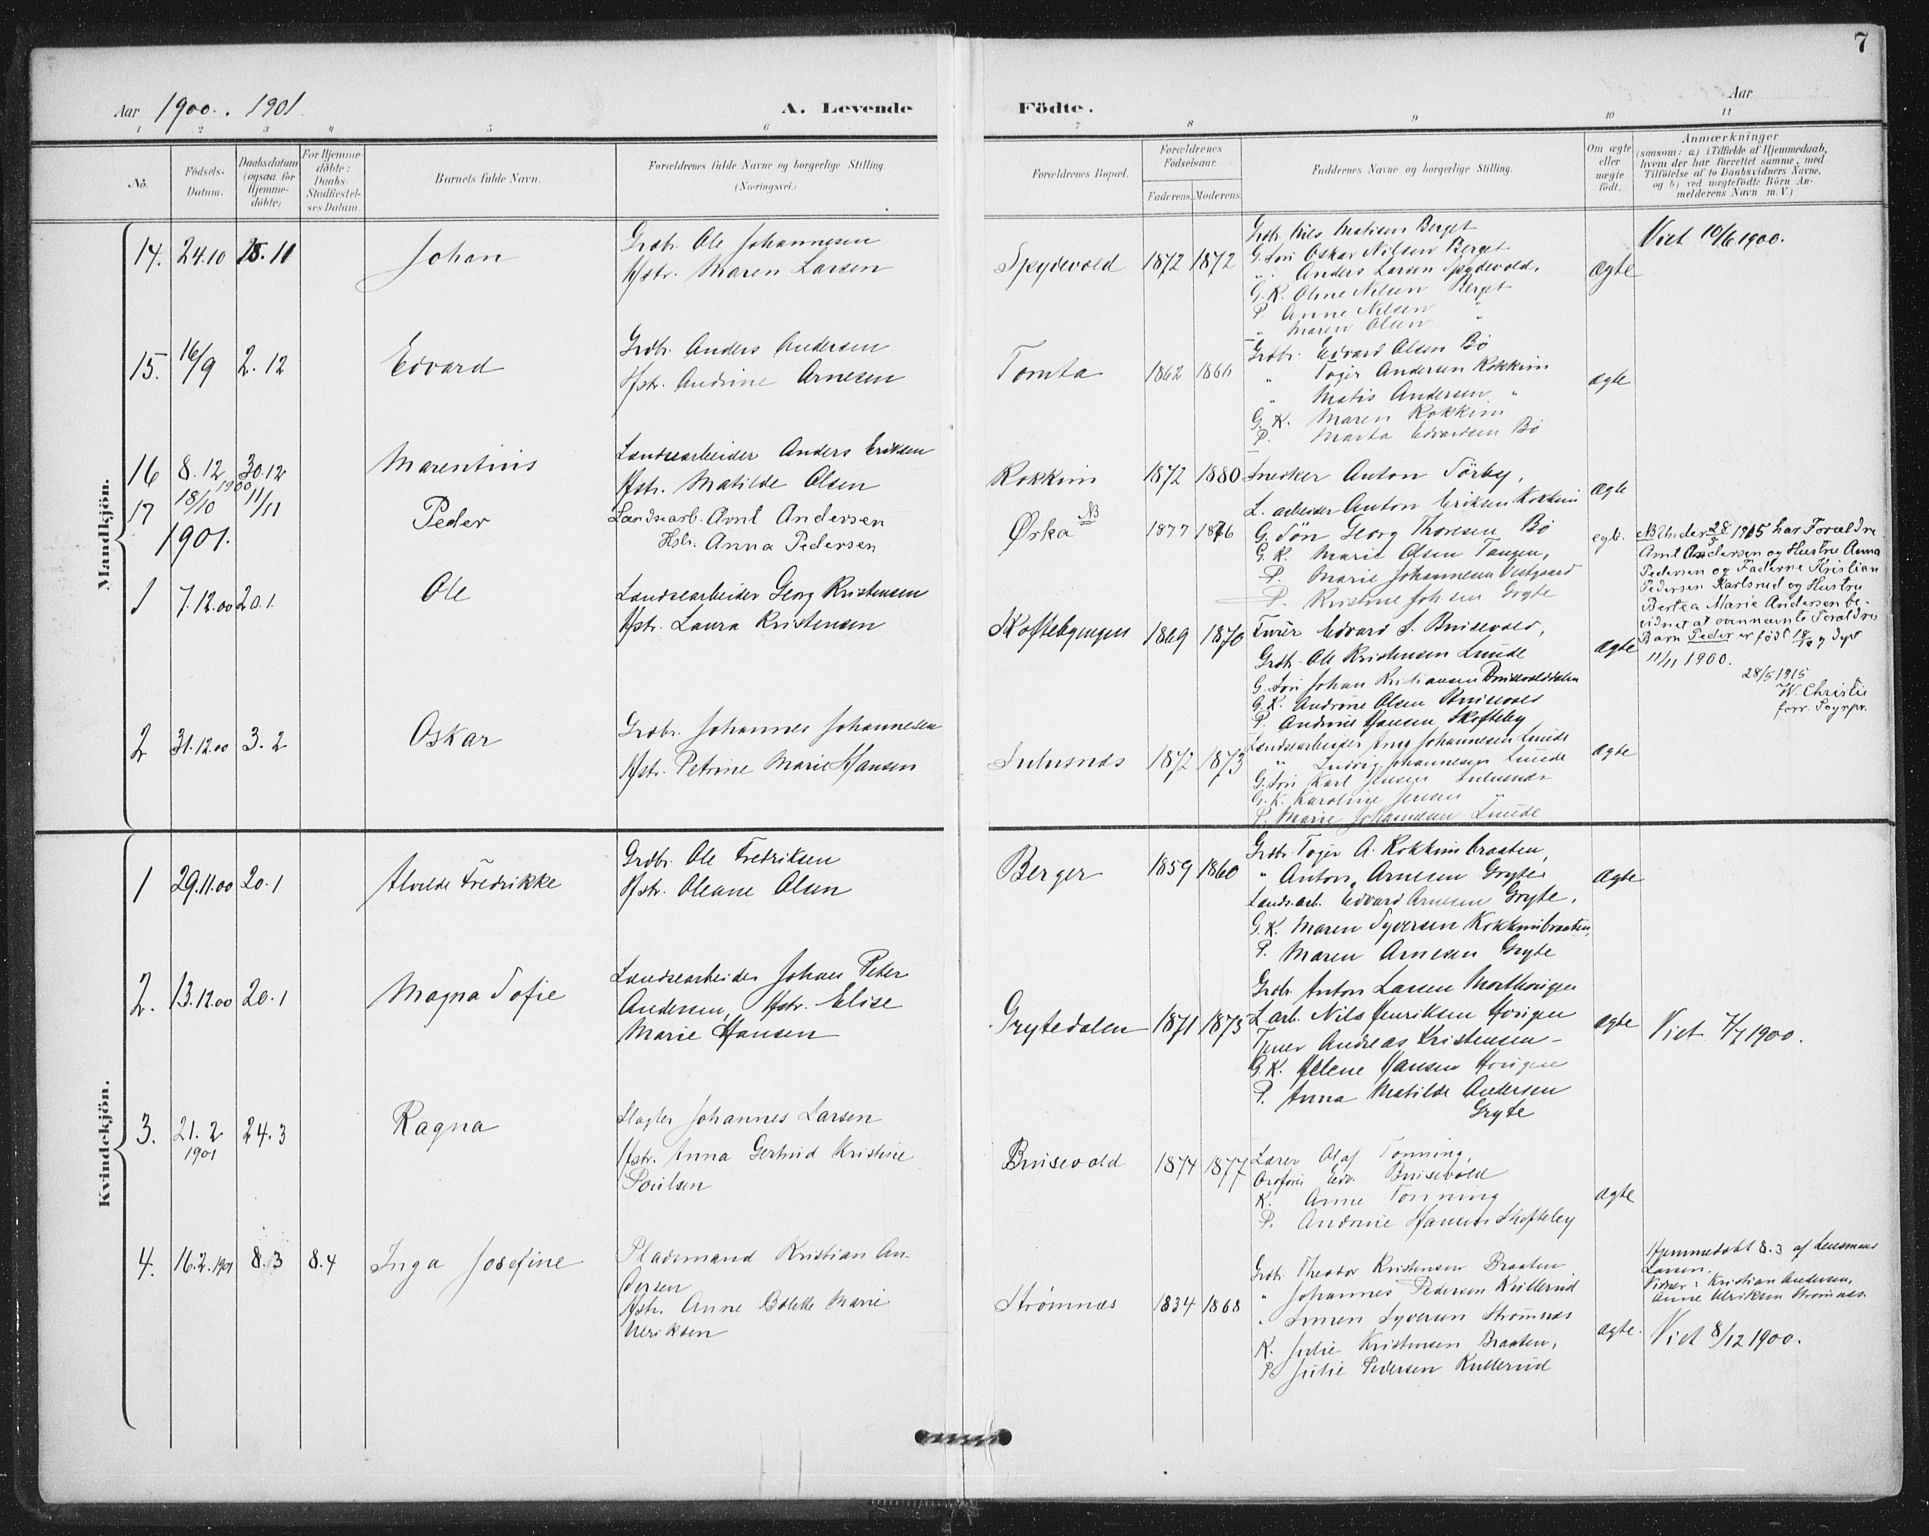 7
Aar 1900. 1901. A. Levende Födte. Aar
1 2 3 4 5 6 7 8 9 10 11
Nö.
Födsels-Datum.
Daabsdatum (ogsaa for Hjemme-döbte)
For Hjemme-döbte: Daabs-Stadfæstel-ses Datum.
Barnets fulde Navn.
Forældrenes fulde Navne og borgerlige Stilling. (Næringsvei.)
Forældrenes Bopæl.
Forældrenes Födselsaar.
Faderens. Moderens.
Faddernes Navne og borgerlige Stilling.
Om ægte eller uægte födt.
Anmærkninger
(saasom: a) i Tilfælde af Hjemmedaab, hvem der har forrettet samme, med Tilföielse af to Daabsvidners Navne, og b) ved uægtefödte Börn An-melderens Navn m. V.)
Mandkjön.
14. 24.10 25.11 Johan
Grdbr. Ole Johannesen
Hstr. Maren Larsen
Spydevold 1872 1872
Grdbr. Nils Matisen Berget
G. Søn Oskar Nilsen Berget
" Anders Larsen Spydevold,
G. K. Oline Nilsen Berget
P. Anne Nilsen "
" Maren Olsen "
ægte
Viet 10/6 1900.
15. 16/9 2.12 Edvard
Grdbr. Anders Andersen
Hstr. Andrine Arnesen
Tomta 1862 1866
Grdbr. Edvard Olsen Bø
" Toger Andersen Kokkim
" Matis Andersen "
G. K. Maren Kokkim
P. Marta Edvardsen Bø
ægte
16 8.12 30.12 Marentius
Landsearbeider Anders Eriksen
Hstr. Matilde Olsen
Kokkim 1872 1880
Snedker Anton Tørby,
L. arbeider Anton Eriksen Kokkim
ægte
17 18/10 1900 11/11 Peder
Landsearb. Arnt Andersen
Hstr. Anna Pedersen
Ørka NB 1877 1876
G. Søn Georg Thoresen Bø
G. K. Marie Olsen Tangen,
P. Marie Johannesen Vestgaard
P. Kristine Johnsen Gryte
egte.
NB Under 28/5 1915 har Forældre
Arnt Andersen og Hustru Anna
Pedersen og Fadderne Kristian
Pedersen Karlsrud og Hustru
Bertea Marie Andersen be-
vidnet at ovennævnte Forældres
Barn Peder er født 18/10 og døpt
11/11 1900.
28/5 1915
W. Christie
forr. Sogepr.
1901.
1 7.12.00 20.1. Ole
Landsearbeider Georg Kristensen
Hstr. Laura Kristensen
Skoftebyengen 1869 1870
Furér Edvard S. Brusevold,
Grdbr. Ole Kristensen Lunde
G. Søn Johan Kristiansen Brusevolddalen
G. K. Andrine Olsen Brusevold
P. Andrine Hansen Skofteby
ægte
2 31.12.00 3.2 Oskar
Grdbr. Johannes Johannesen
Hstr. Petrine Marie Hansen
1872 1873
Landsearbeider Johannesen Lunde
" Ludvig Johannesen Lunde
G. Søn Karl Jensen
G. K. Karoline Jensen "
P. Marie Johannesen Lunde
ægte
Kvindekjön.
1 29.11.00 20.1 Alvilde Fredrikke
Grdbr. Ole Fredriksen
Hstr. Oleane Olsen
Berger 1859 1860
Grdbr. Toger A. Kokkimbraaten,
" Anton Arnesen Gryte
Landsarb. Edvard Arnesen Gryte,
G. K. Maren Syversen Kokkimbraaten,
P. Maren Arnesen Gryte
ægte
2. 13.12.00 20.1 Magna Sofie
Landsearbeider Johan Peder
Andersen, Hstr. Elise
Marie Hansen
Grytedalen 1871 1873
Grdbr. Anton Larsen
L. arb. Nils Henriksen Horigen
Andreas Kristensen -
G. K. Helene Hansen Horigen
P. Anna Matilde Andersen
Gryte
ægte
Viet 7/7 1900.
3. 21.2 1901 24.3 Ragna
Slagter Johannes Larsen
Hstr. Anna Gertrud Kristine
Poulsen
Brusevold 1874 1877
Lærer Olaf Tonning,
Edv. Brusevold
K. Anne Tonning
P. Andrine Hansen Skofteby
ægte
4. 16.2.1901 8.3 8.4 Inga Josefine
Pladsmand Kristian An-
dersen
Hstr. Anne Bolette Marie
Ulriksen
Strømnæs 1834 1868
Grdbr. Theodor Kristensen Braaten
" Johannes Pedersen Kullerud
" Simen Syversen Strømnæs
K. Julie Kristensen Braaten,
P. Julie Pedersen Kullerud
ægte.
Hjemmedøbt 8.3 af Lensmand
Larsen.
Vidner: Kristian Andersen,
Anne Ulriksen Strømnæs.
Viet 8/12 1900.